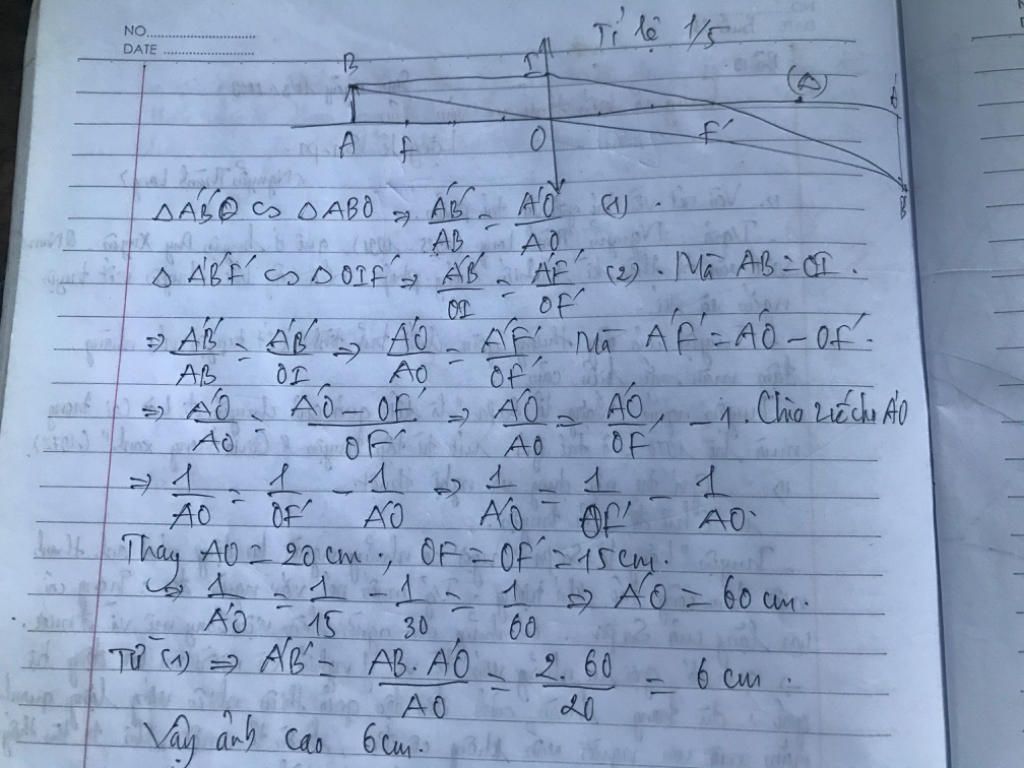 NO.
DATE
Tỉ lệ 1/5
B I Δ
A F O F' A'
B'
ΔA'B'O ∽ ΔABO ⇒ A'B'/AB = A'O/AO (1).
ΔA'B'F' ∽ ΔOIF' ⇒ A'B'/OI = A'F'/OF' (2). Mà AB = OI.
⇒ A'B'/AB = A'B'/OI ⇒ A'O/AO = A'F'/OF' Mà A'F' = A'O - OF'.
⇒ A'O/AO = A'O - OF'/OF' ⇒ A'O/AO = A'O/OF' - 1. Chia 2 vế cho A'O
⇒ 1/AO = 1/OF' - 1/A'O ⇒ 1/A'O = 1/OF' - 1/AO.
Thay AO = 20 cm; OF = OF' = 15 cm.
↪ 1/A'O = 1/15 - 1/30 = 1/60 ⇒ A'O = 60 cm.
Từ (1) ⇒ A'B' = AB.A'O/AO = 2.60/20 = 6 cm.
Vậy ảnh cao 6cm.